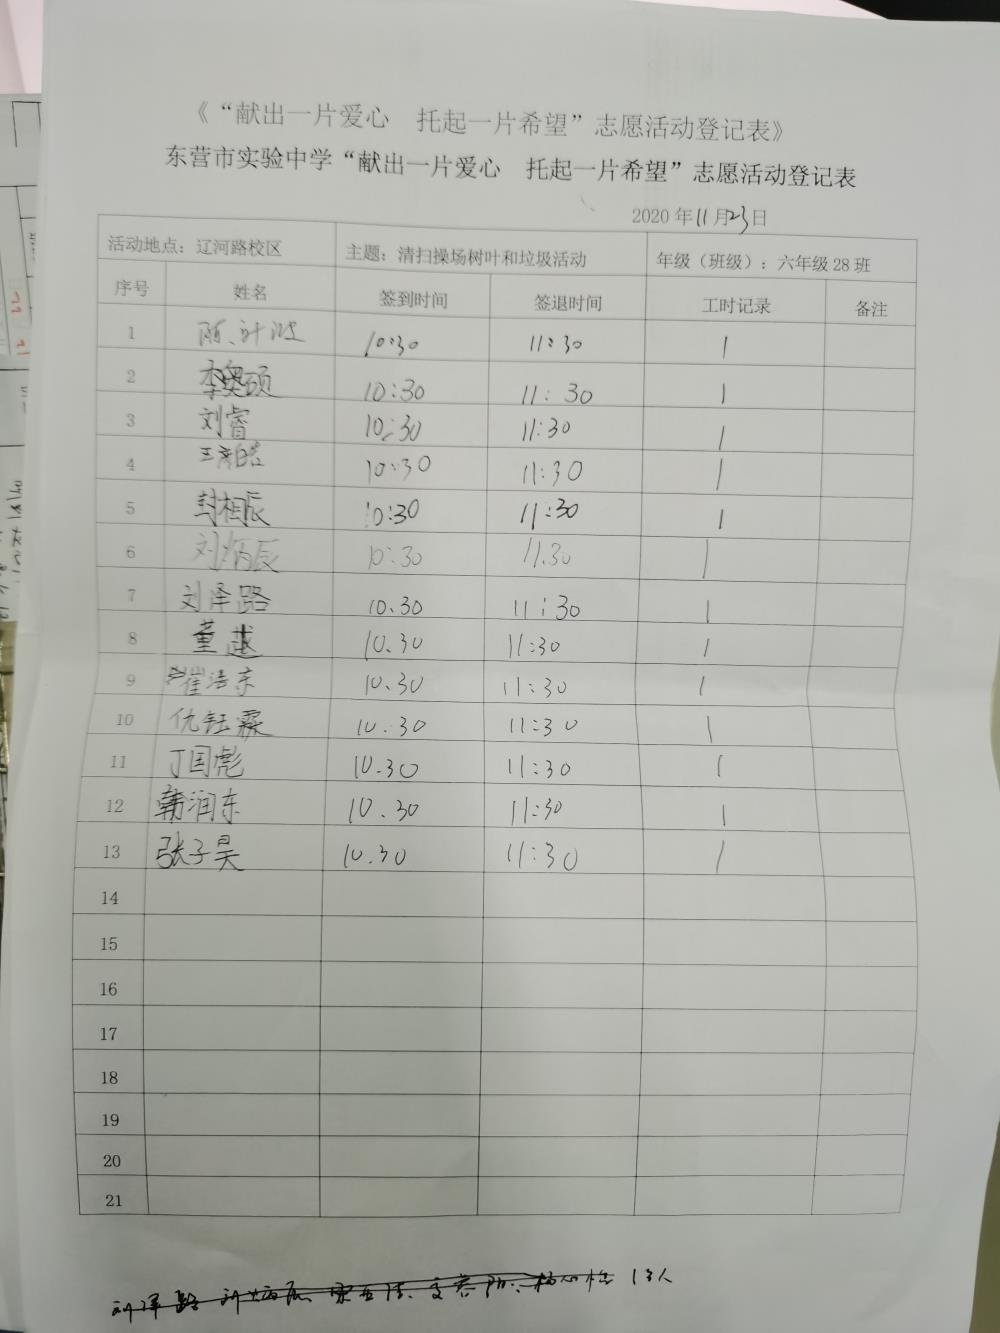 《“献出一片爱心 托起一片希望”志愿活动登记表》
东营市实验中学“献出一片爱心 托起一片希望”志愿活动登记表
2020年11月23日
活动地点：辽河路校区 主题：清扫操场树叶和垃圾活动 年级（班级）：六年级28班
序号 姓名 签到时间 签退时间 工时记录 备注
1 10:30 11:30 1
2 李奥硕 10:30 11:30 1
3 刘睿 10:30 11:30 1
4 10:30 11:30 1
5 封相辰 10:30 11:30 1
6 刘炳辰 10:30 11.30 1
7 刘泽路 10.30 11:30 1
8 董越 10.30 11:30 1
9 崔浩东 10.30 11:30 1
10 仇钰霖 10.30 11:30 1
11 丁国彪 10.30 11:30 1
12 韩润东 10.30 11:30 1
13 张子昊 10.30 11:30 1
14
15
16
17
18
19
20
21
13人